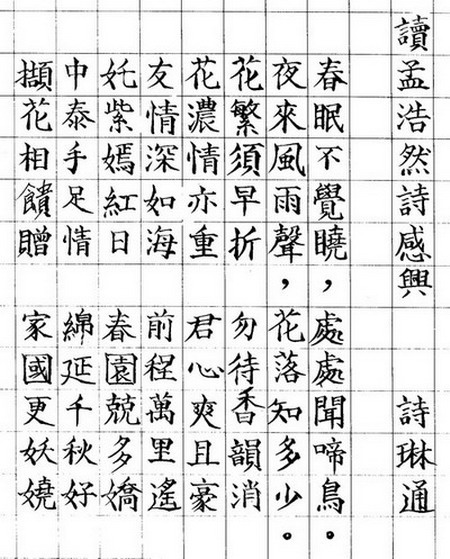 讀孟浩然詩感興 詩琳通
春眠不覺曉，處處聞啼鳥。
夜來風雨聲，花落知多少。
花繁須早折 勿待香韻消
花濃情亦重 君心爽且豪
友情深如海 前程萬里遙
奼紫嫣紅日 春園兢多嬌
中泰手足情 綿延千秋好
擷花相饋贈 家國更妖嬈